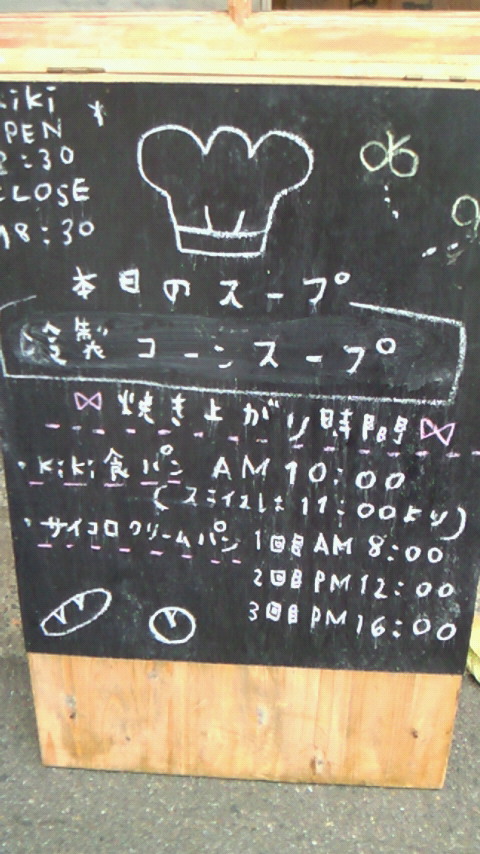 kiki
OPEN
8:30
CLOSE
18:30
本日のスープ
製コーンスープ
焼き上がり時間
・kiki食パン AM10:00
(スライスは11:00より)
・サイコロクリームパン 1回目 AM8:00
2回目 PM12:00
3回目 PM16:00